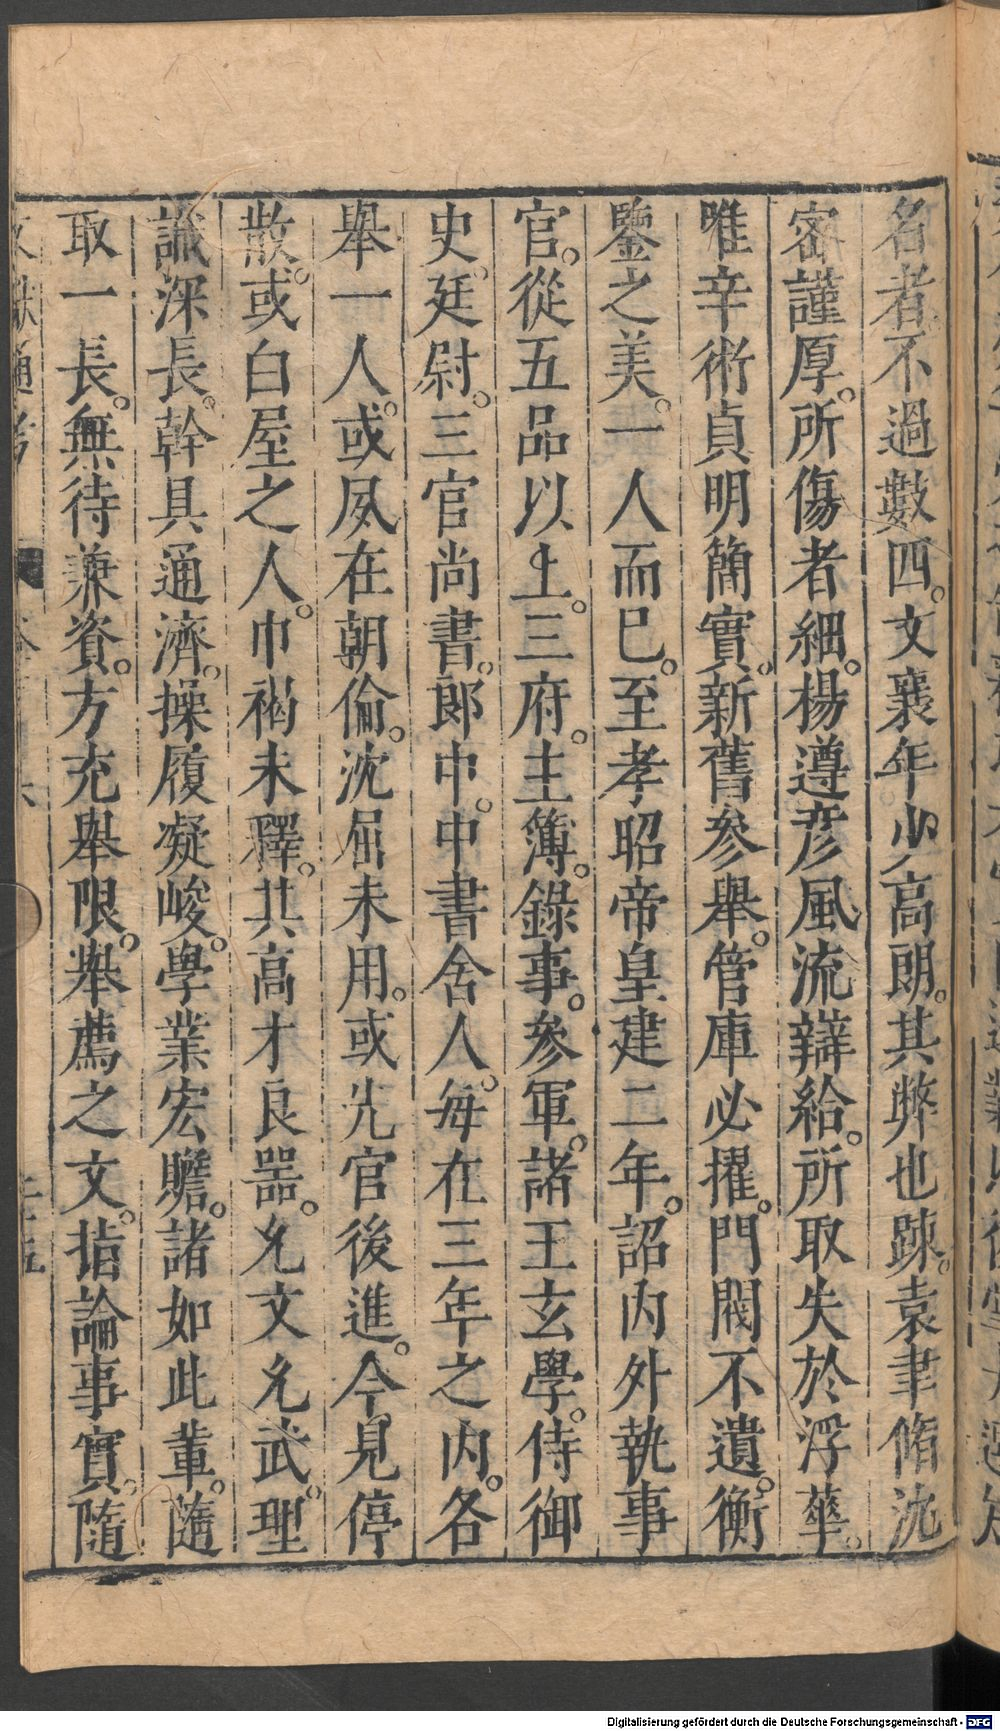 名者不過數四。文襄年少高朗。其弊也踈。袁聿脩沈
密謹厚。所傷者細。楊遵彥風流辯給。所取失於浮華。
唯辛術貞明簡實。新舊參舉。管庫必擢。門閥不遺。衡
鑒之美。一人而已。至孝昭帝皇建二年。詔內外執事
官。從五品以上。三府。主簿。錄事。參軍。諸王玄學。侍御
史。廷尉。三官尚書。郎中。中書舍人。每在三年之內。各
舉一人。或夙在朝倫。沈屈未用。或先官後進。今見停
散。或白屋之人。巾褐未釋。其高才良器。允文允武。理
識深長。幹具通濟。操履凝峻。學業宏贍。諸如此輩。隨
取一長。無待兼資。方充舉限。舉薦之文。指論事實。隨
文獻通考
Digitalisierung gefördert durch die Deutsche Forschungsgemeinschaft - DFG